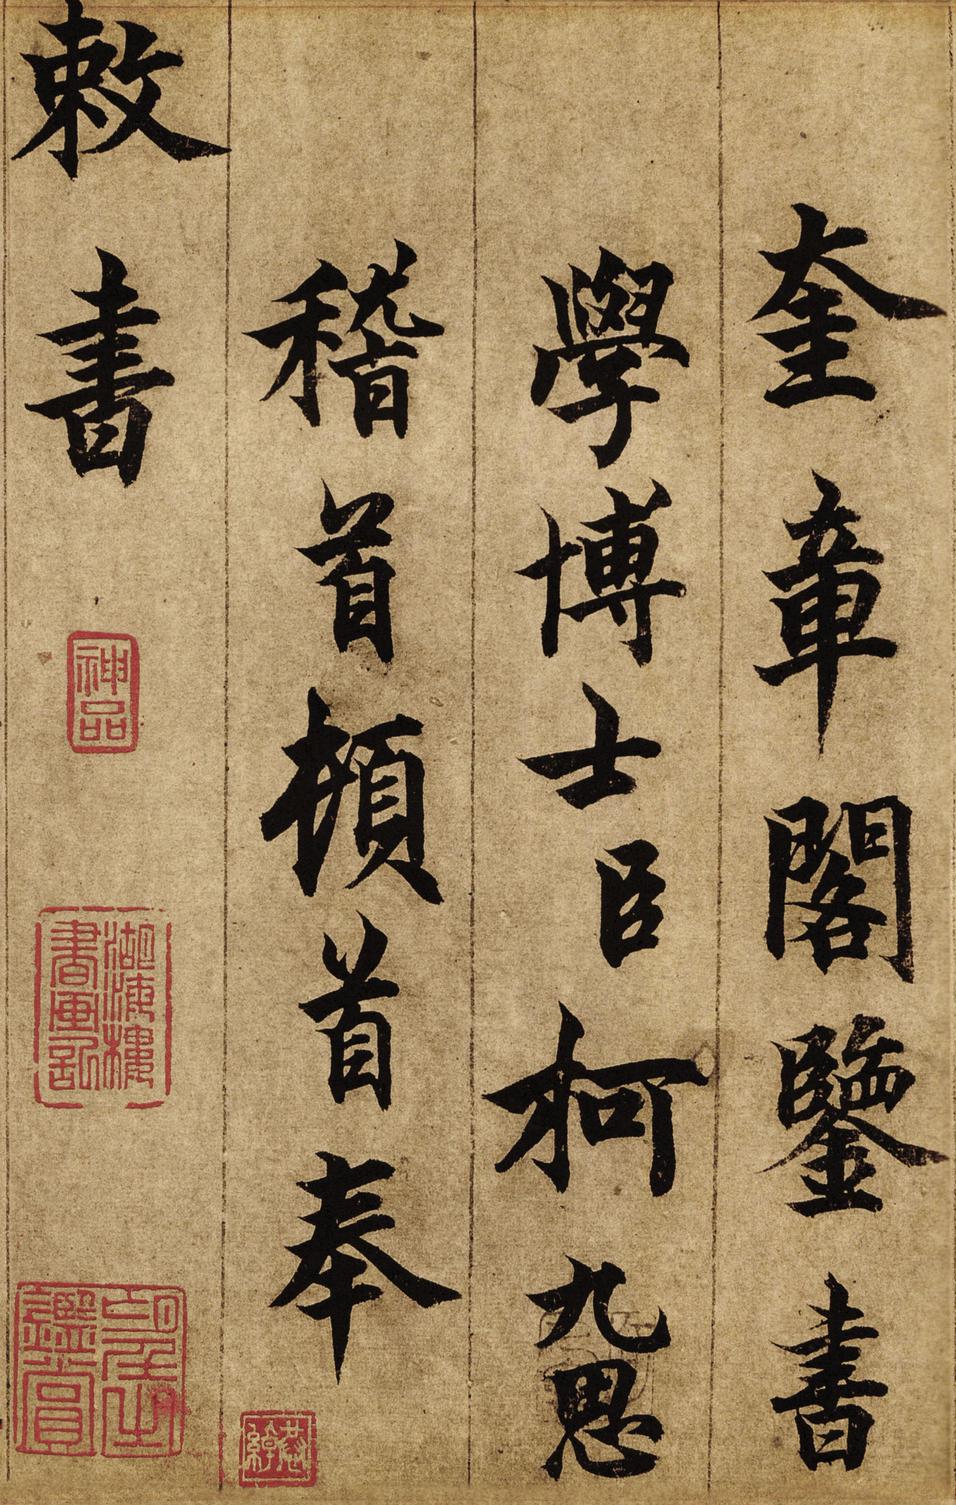 奎章閣鑒書
學博士臣柯九思
稽首頓首奉
敕書
神品
湖海樓書畫記